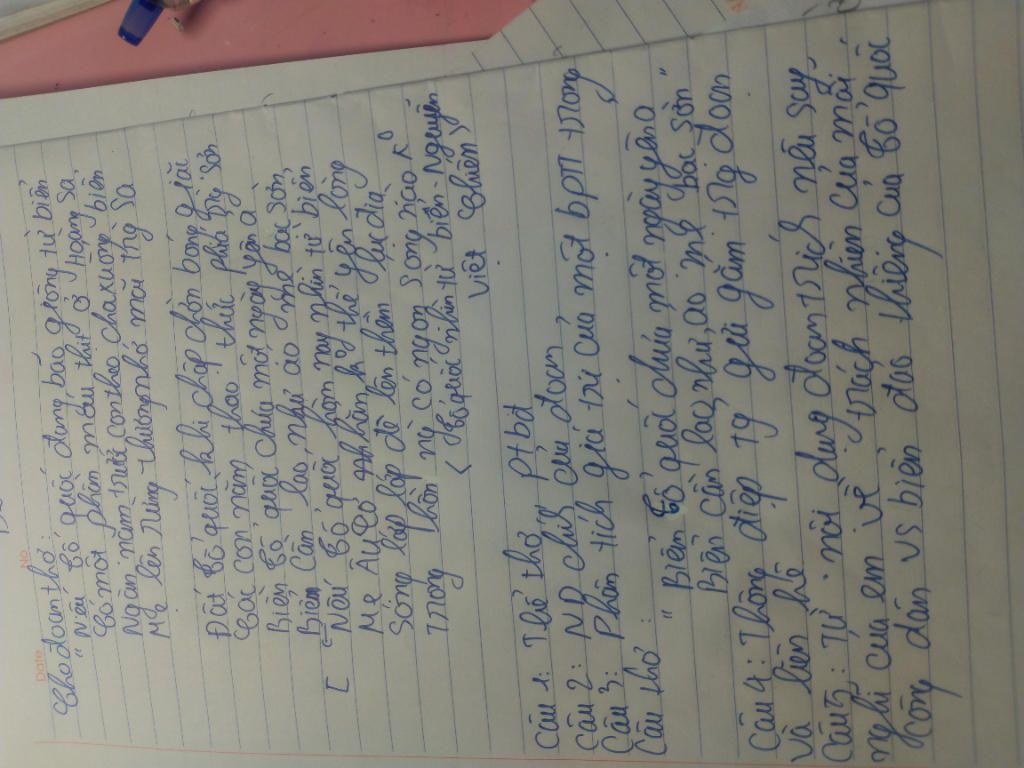 No
Date
Cho đoạn thơ:
" Nếu Tổ quốc đang bão giông từ biển
Có một phần máu thịt ở Hoàng Sa
Ngàn năm trước con theo cha xuống biển
Mẹ lên rừng thương nhớ mãi Trg Sa
Đất Tổ quốc khi chập chờn bóng giặc
Các con nằm thao thức phía Trg Sơn
Biển Tổ quốc chưa một ngày yên ả
Biển cần lao như áo mẹ bạc sờn
[ Nếu Tổ quốc hôm nay nhìn từ biển
Mẹ Âu Cơ hẳn kg thể yên lòng
Sóng lớp lớp đè lên thềm lục địa
Trong hồn ng có ngọn sóng nào k°
< Tổ quốc nhìn từ biển - Nguyễn
Việt Chiến >
Câu 1: Thể thơ ptbđ
Câu 2: ND chính của đoạn
Câu 3: Phân tích giá trị của một bptt trong
Câu thơ:
" Biển Tổ quốc chưa một ngày yên ả
Biển cần lao như áo mẹ bạc sờn "
Câu 4: Thông điệp tg gửi gắm trg đoạn
và liên hệ
Câu 5: Từ nội dung đoạn trích nêu suy
nghĩ của em về trách nhiệm của mỗi
công dân vs biển đảo thiêng của Tổ quốc